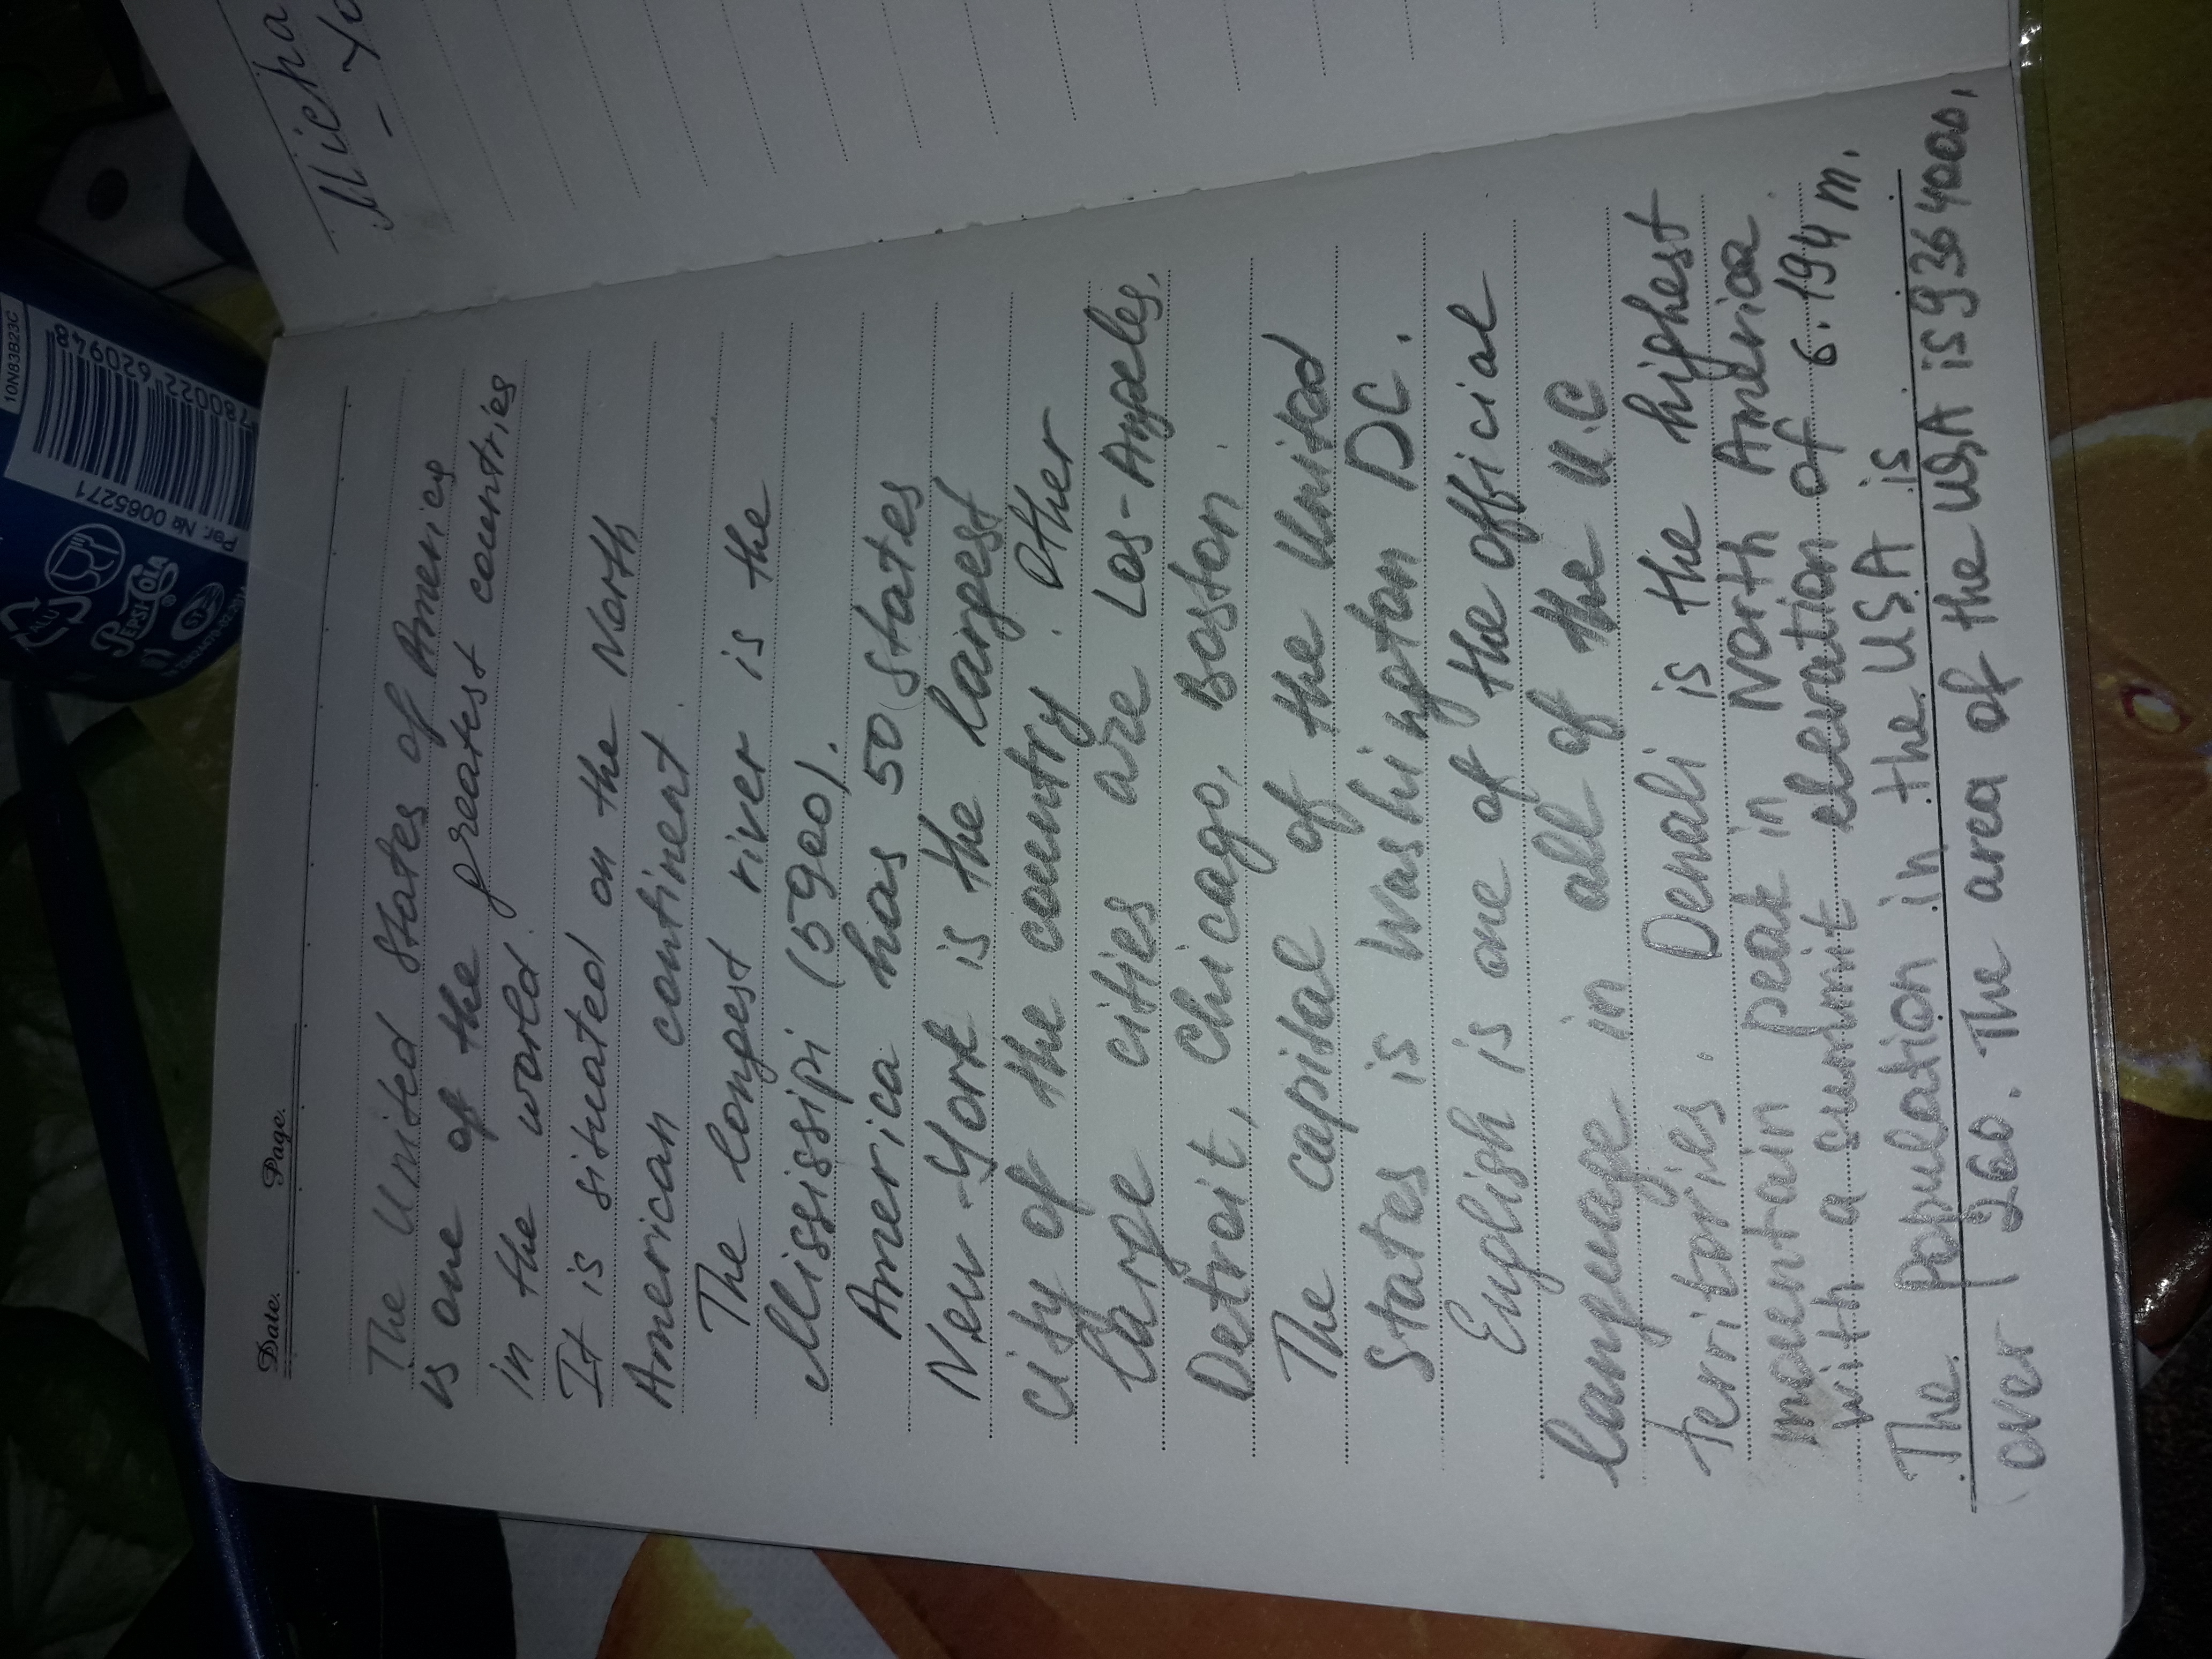 Date.
Page.
The United States of Americs
is one of the greatest countries
in the world.
It is situated on the North
American continent.
The longest river is the
Mississipi (5920).
America has 50 states
New-York is the largest
city of the country. Other
large cities are Los-Angeles,
Detroit, Chicago, Boston.
The capital of the United
States is Washington DC.
English is one of the official
language in all of the U.C
territories. Denali is the highest
mountain peak in North America
with a summit elevation of 6.194 m.
The population in the USA is
over 260. The area of the USA is 9364000.
10N83B23C
780022 620948
Par. № 0065271
ALU
PEPSI COLA